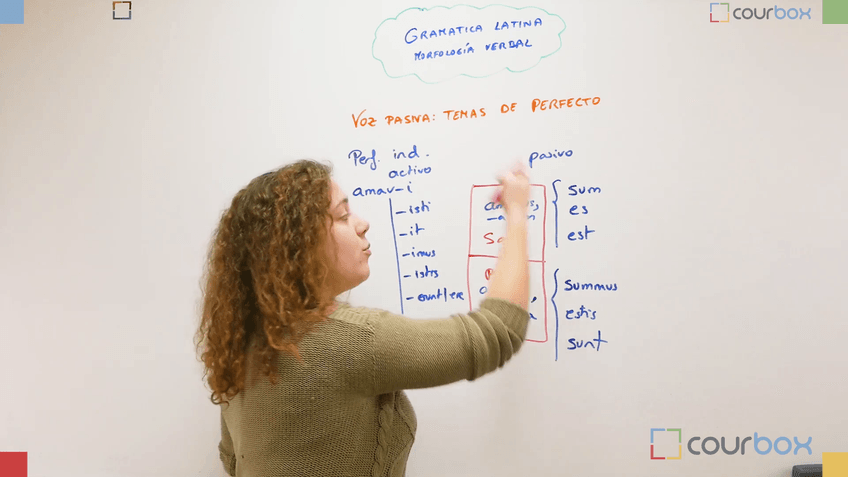 courbox
GRAMATICA LATINA
MORFOLOGÍA VERBAL
VOZ PASIVA: TEMAS DE PERFECTO
Perf. ind.
activo
pasivo
amav-i
-isti
-it
-imus
-istis
-erunt/ere
sum
es
est
summus
estis
sunt
courbox